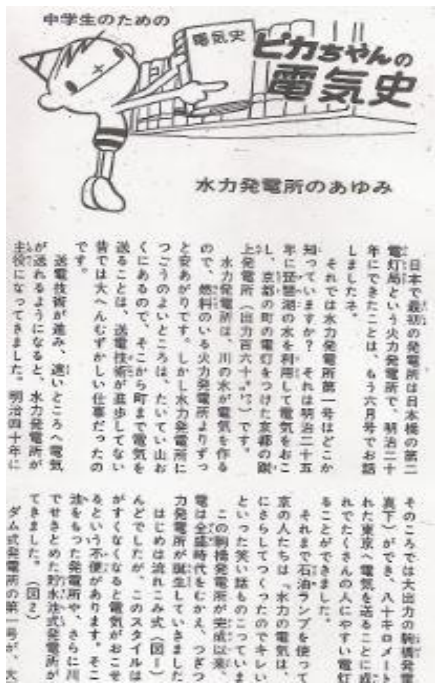 中学生のための
電気史
ピカちゃんの
電気史
水力発電所のあゆみ
日本で最初の発電所は日本橋の第二
電灯局という火力発電所で、明治二十
年にできたことは、もう六月号でお話
しましたネ。
それでは水力発電所第一号はどこか
知っていますか? それは明治二十五
年に琵琶湖の水を利用して電気をおこ
し、京都の町の電灯をつけた京都の蹴
上発電所(出力百六十㌔㍗)です。
水力発電所は、川の水が電気を作る
ので、燃料のいる火力発電所よりずっ
と安あがりです。しかし水力発電所に
つごうのよいところは、たいてい山お
くにあるので、そこから町まで電気を
送ることは、送電技術が進歩してない
昔では大へんむずかしい仕事だったの
です。
送電技術が進み、遠いところへ電気
が送れるようになると、水力発電所が
主役になってきました。明治四十年に
そのころでは大出力の駒橋発電
真下)ができ、八十キロメート
れた東京へ電気を送ることに成
れでたくさんの人にやすい電灯
ることができました。
それまで石油ランプを使って
京の人たちは「水力の電気は、
にさらしてつくったのでキレい
といった笑い話ものこっていま
この駒橋発電所が完成以来、
電は全盛時代をむかえ、つぎつ
力発電所が誕生していきました
はじめは流れこみ式(図1)
んどでしたが、このスタイルは
がすくなくなると電気がおこせ
るという不便があります。そこ
池をもった発電所や、さらに川
でせきとめた貯水池式発電所が
てきました。(図2)
ダム式発電所の第一号が、大